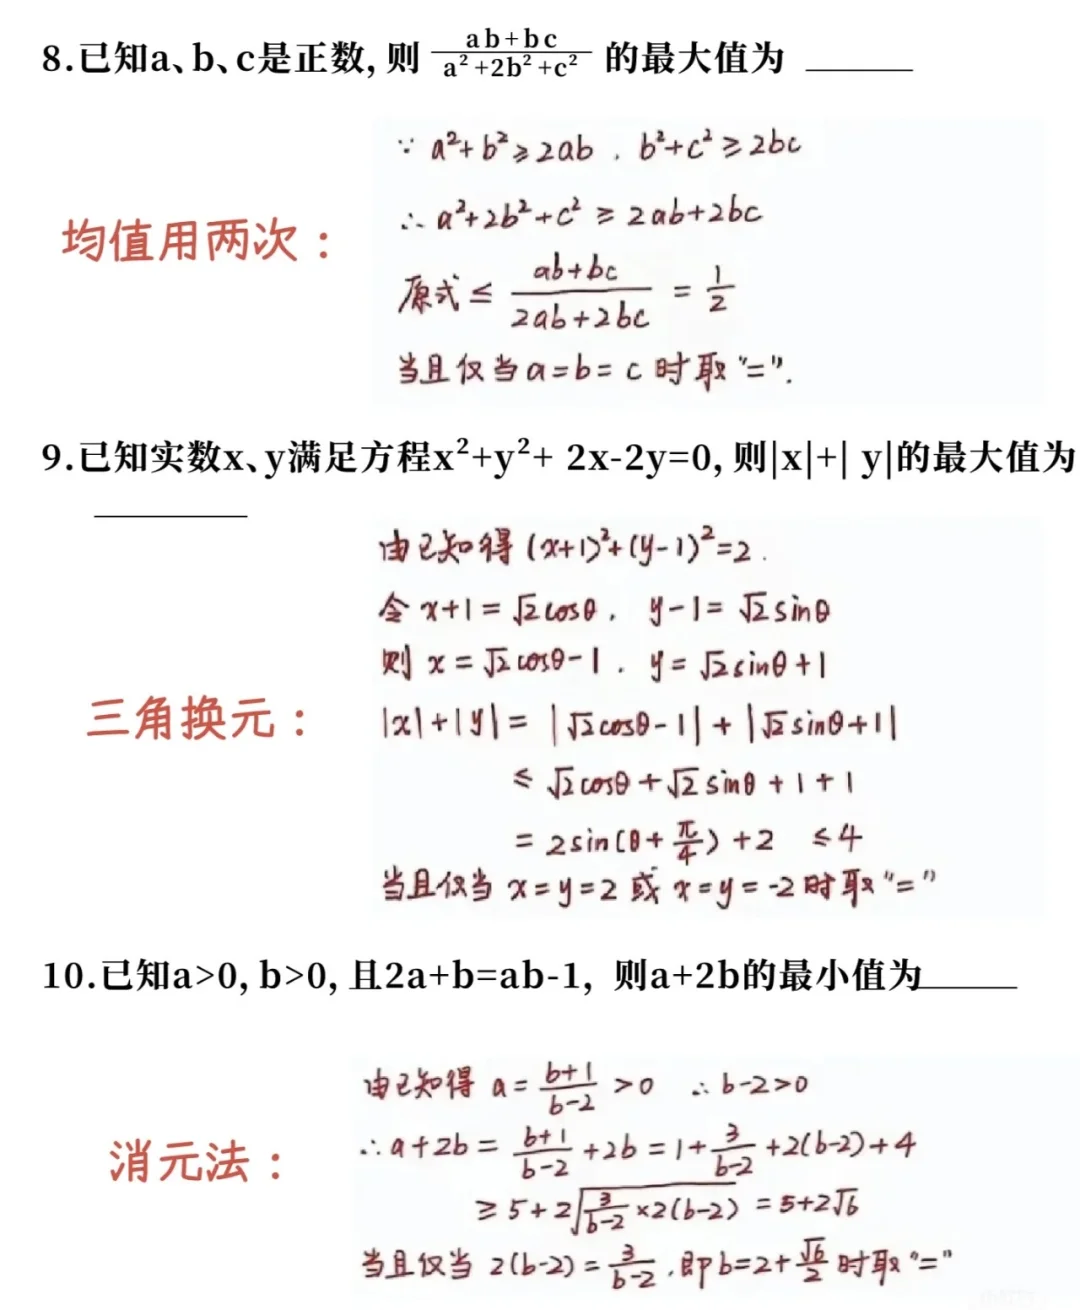 8.已知a、b、c是正数, 则 \frac{ab+bc}{a²+2b²+c²} 的最大值为 ______
∵ a²+b²≥2ab , b²+c²≥2bc
∴ a²+2b²+c² ≥ 2ab+2bc
均值用两次：
原式 ≤ \frac{ab+bc}{2ab+2bc} = \frac{1}{2}
当且仅当a=b=c时取"=".
9.已知实数x、y满足方程x²+y²+ 2x-2y=0, 则|x|+| y|的最大值为
______
由已知得 (x+1)²+(y-1)²=2 .
令 x+1=√2cosθ , y-1=√2sinθ
则 x=√2cosθ-1 . y=√2sinθ+1
三角换元：
|x|+|y| = |√2cosθ-1| + |√2sinθ+1|
≤ √2cosθ+√2sinθ+1+1
= 2sin(θ+\frac{π}{4})+2 ≤4
当且仅当 x=y=2 或 x=y=-2时取"="
10.已知a>0, b>0, 且2a+b=ab-1, 则a+2b的最小值为______
由已知得 a=\frac{b+1}{b-2} >0 ∴ b-2>0
∴ a+2b = \frac{b+1}{b-2} +2b = 1+\frac{3}{b-2} +2(b-2)+4
消元法：
≥ 5+2√{\frac{3}{b-2}×2(b-2)} = 5+2√6
当且仅当 2(b-2)=\frac{3}{b-2} ,即b=2+\frac{√6}{2}时取"="